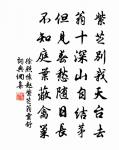 紫芝別我天台去
翁十深山自結茅
但見愁隨日長
不知庭葉蔽禽巢
徐照懷趙紫芝翁靈舒
詞典網集